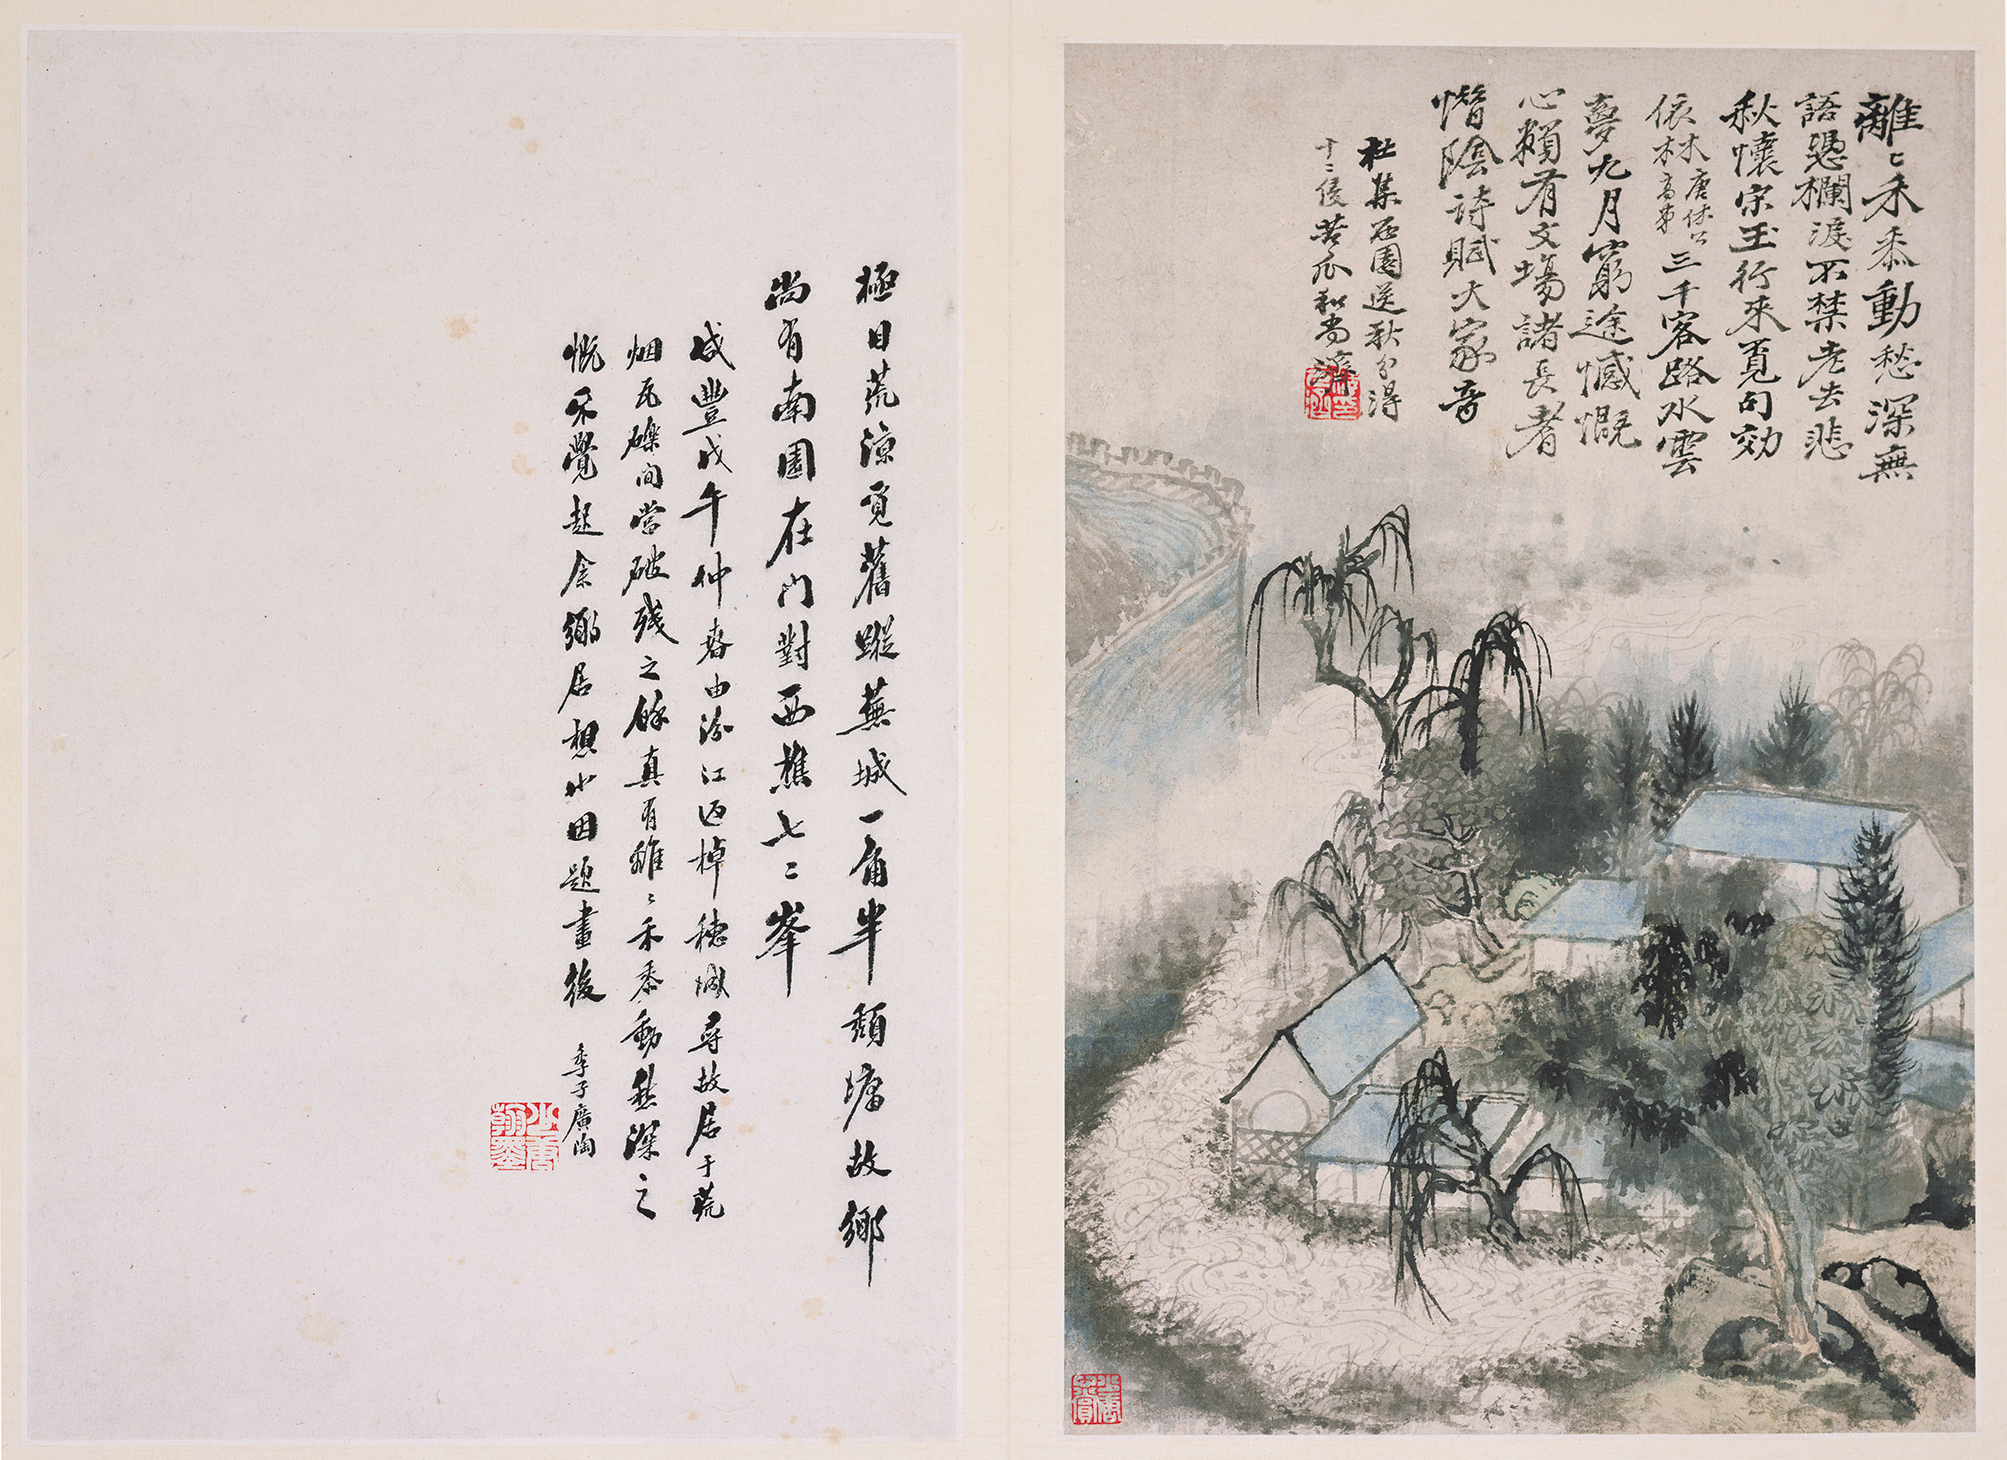 離〻禾黍動愁深無
語憑欄淚不禁老去悲
秋懷宋玉行來覓句効
依林唐休公
林高弟
三千客路水雲
夢九月窮途憾慨
心賴有文場諸長者
惜陰詩賦大家音
杜集石園送秋分得
十二侵苦瓜和尚濟
極目荒涼覓舊蹤蕪城一角半頹墉故鄉
尚有南園在門對西樵七二峯
咸豐戊午仲春由汾江返棹穗城尋故居于荒
烟瓦礫間當破殘之餘真有離〻禾黍動愁深之
慨不覺起余鄉居想也因題畫後
季子廣陶
少唐
翰墨